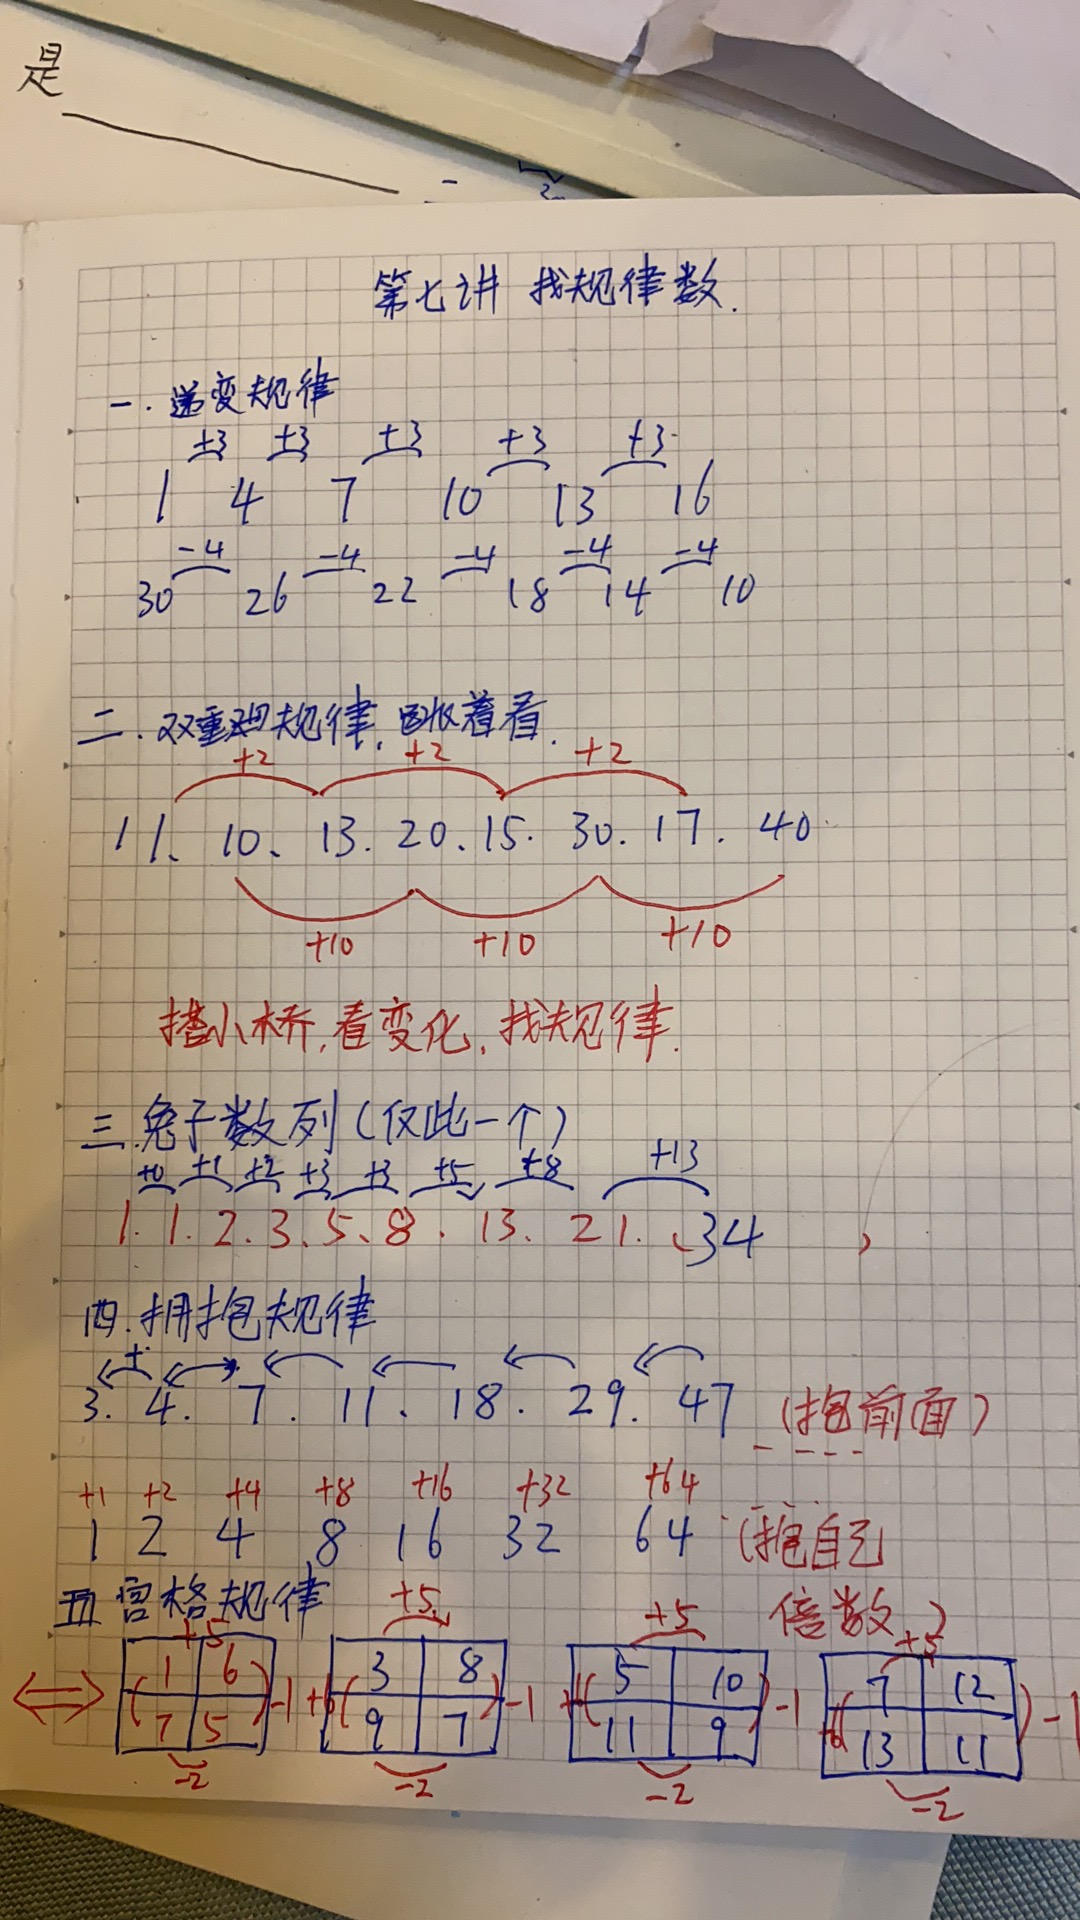 是
第七讲 找规律数.
一.递变规律
+3 +3 +3 +3 +3
1 4 7 10 13 16
-4 -4 -4 -4 -4
30 26 22 18 14 10
二.双重规律,着看.
+2 +2 +2
11、10、13.20、15.30.17.40
+10 +10 +10
搭小桥,看变化,找规律.
三.兔子数列(仅此一个)
+0 +1 +2 +3 +3 +5 +8 +13
1.1.2.3、5、8.13.21.、34
四.拥抱规律
+
3.4.7.11、18.29.47 (抱前面)
+1 +2 +4 +8 +16 +32 +64
1 2 4 8 16 32 64 (抱自己
五宫格规律 倍数)
+5 +5 +5 +5
1 6 3 8 5 10 7 12
( )-1 +6( )-1 +( )-1 +6( )-1
7 5 9 7 11 9 13 11
-2 -2 -2 -2